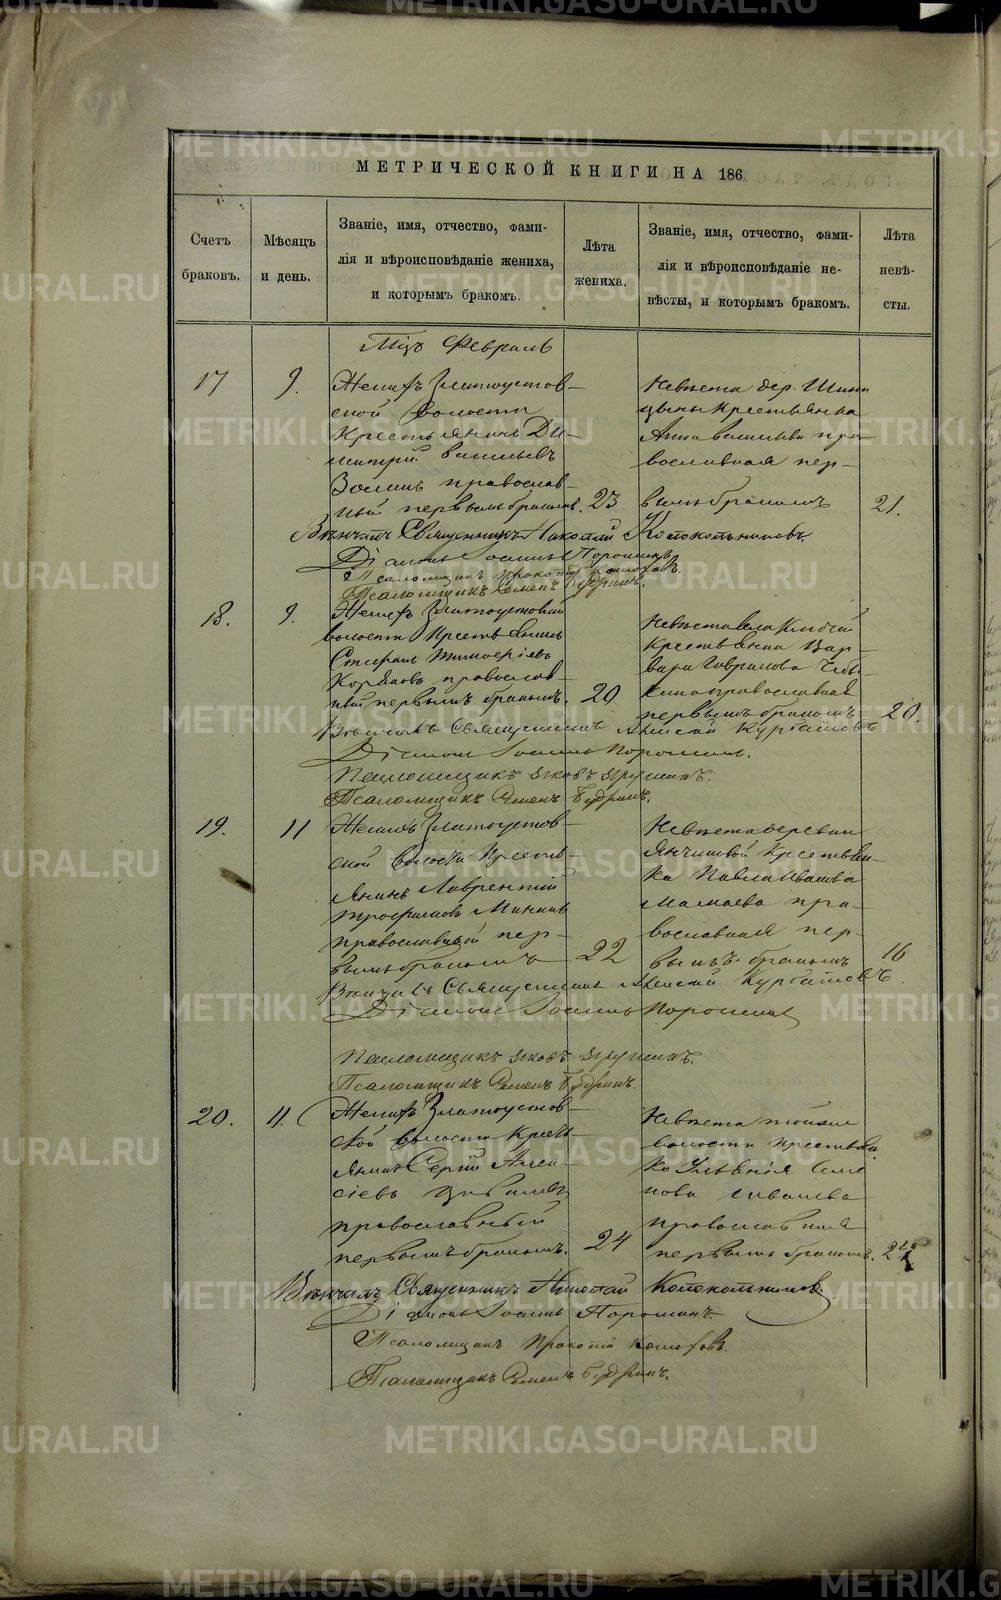 МЕТРИЧЕСКОЙ КНИГИ НА 186
Счетъ браковъ.
Мѣсяцъ и день.
Званіе, имя, отчество, фами-
лія и вѣроисповѣданіе жениха,
и которымъ бракомъ.
Лѣта жениха.
Званіе, имя, отчество, фами-
лія и вѣроисповѣданіе не-
вѣсты, и которымъ бракомъ.
Лѣта невѣ-
сты.
Мцъ Февраль
17
9.
Женихъ Златоустов-
ской волости
Крестьянинъ Ди-
митрій Васильевъ
Зоминъ православ-
ный первымъ бракомъ.
23
Невѣста дер. Шипи
цыны Крестьянка
Анна Васильева пра-
вославная пер-
вымъ бракомъ
21.
Вѣнчалъ Священникъ Николай Колокольниковъ.
Діаконъ Іоаннъ Порошинъ
Псаломщикъ Прокопій Конюховъ.
Псаломщикъ Семенъ Будринъ.
18.
9.
Женихъ Златоустовской
волости Крестьянинъ
Стефанъ Тимофѣевъ
Коряковъ православ
ный первымъ бракомъ.
20
Невѣста села
Крестьянка Вар-
вара Гаврилова
православная
первымъ бракомъ
20.
Вѣнчалъ Священникъ Алексѣй Курбатовъ
Діаконъ Іоаннъ Порошинъ.
Псаломщикъ Яковъ
Псаломщикъ Семенъ Будринъ.
19.
11
Женихъ Златоустов-
ской волости Кресть-
янинъ Лаврентій
Трофимовъ Мининъ
православный пер-
вымъ бракомъ
22
Невѣста деревни
Янчишвой Крестьян-
ка Павла Иванова
Мамаева пра-
вославная пер-
вымъ бракомъ
16
Вѣнчалъ Священникъ Алексѣй Курбатовъ
Діаконъ Іоаннъ Порошинъ
Псаломщикъ Яковъ
Псаломщикъ Семенъ Будринъ.
20.
11.
Женихъ Златоустов-
ской волости Кресть-
янинъ Сергій Алек-
сіевъ
православный
первымъ бракомъ.
24
Невѣста тойже
волости Крестьян
ка Ульянія Семе
нова
православная
первымъ бракомъ.
Вѣнчалъ Священникъ Николай Колокольниковъ.
Діаконъ Іоаннъ Порошинъ.
Псаломщикъ Прокопій Конюховъ.
Псаломщикъ Семенъ Будринъ.
METRIKI.GASO-URAL.RU